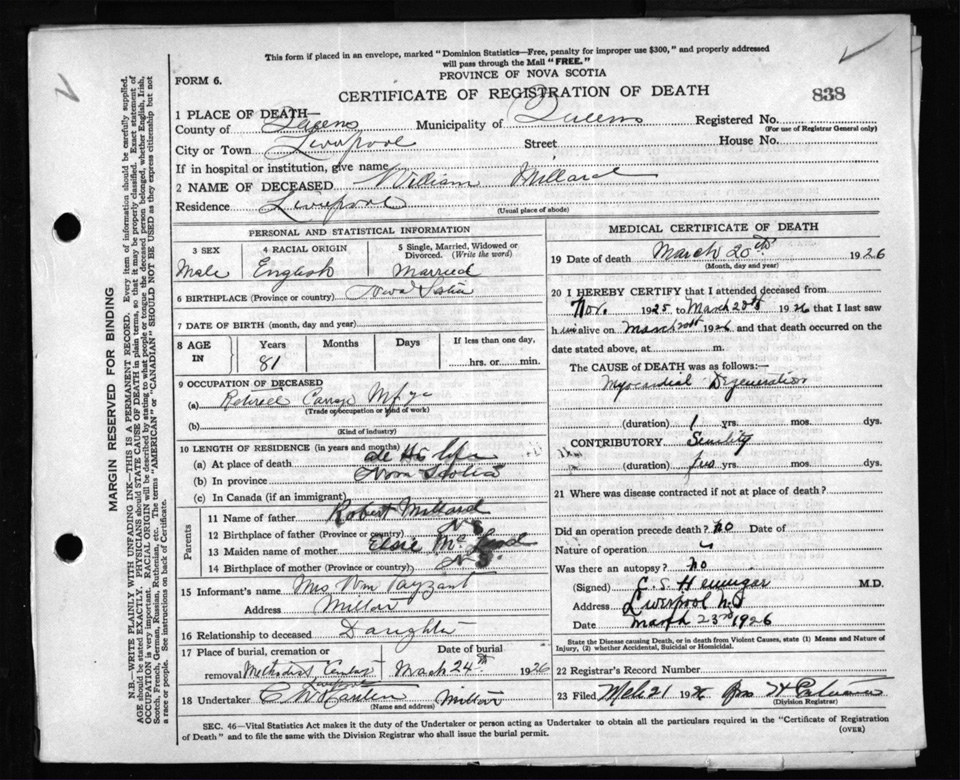 This form if placed in an envelope, marked "Dominion Statistics—Free, penalty for improper use $300," and properly addressed
will pass through the Mail "FREE."
PROVINCE OF NOVA SCOTIA
FORM 6.
CERTIFICATE OF REGISTRATION OF DEATH
838
1 PLACE OF DEATH—
County of Queens Municipality of Queens Registered No.
(For use of Registrar General only)
City or Town Liverpool Street House No.
If in hospital or institution, give name
2 NAME OF DECEASED William Millard
Residence Liverpool
(Usual place of abode)
PERSONAL AND STATISTICAL INFORMATION
3 SEX 4 RACIAL ORIGIN 5 Single, Married, Widowed or
Divorced. (Write the word)
Male English Married
6 BIRTHPLACE (Province or country) Nova Scotia
7 DATE OF BIRTH (month, day and year)
8 AGE
IN
Years Months Days If less than one day,
81 hrs. or min.
9 OCCUPATION OF DECEASED
(a) Retired Carriage Mfgr
(Trade or occupation or kind of work)
(b)
(Kind of industry)
10 LENGTH OF RESIDENCE (in years and months)
(a) At place of death all His life
(b) In province Nova Scotia
(c) In Canada (if an immigrant)
Parents
11 Name of father Robert Millard
12 Birthplace of father (Province or country) N S
13 Maiden name of mother Elsie McLeod
14 Birthplace of mother (Province or country) N S
15 Informant's name Mrs Wm Tayzant
Address Milton
16 Relationship to deceased Daughter
17 Place of burial, cremation or
removal Methodist
Liverpool
Date of burial
March 24th 1926
18 Undertaker Milton
(Name and address)
MEDICAL CERTIFICATE OF DEATH
19 Date of death March 20th 1926
(Month, day and year)
20 I HEREBY CERTIFY that I attended deceased from
Nov. 1925 to March 20th 1926 that I last saw
him alive on March 20th 1926 and that death occurred on the
date stated above, at m.
The CAUSE OF DEATH was as follows:—
Myocardial Degeneration
(duration) 1 yrs. mos. dys.
CONTRIBUTORY Senility
(duration) two yrs. mos. dys.
21 Where was disease contracted if not at place of death?
Did an operation precede death? no Date of
Nature of operation
Was there an autopsy? no
(Signed) C. S. Hennigar M.D.
Address Liverpool N.S
Date March 23rd 1926
State the Disease causing Death, or in death from Violent Causes, state (1) Means and Nature of
Injury, (2) whether Accidental, Suicidal or Homicidal.
22 Registrar's Record Number
23 Filed Mch 21 1926
(Division Registrar)
SEC. 46—Vital Statistics Act makes it the duty of the Undertaker or person acting as Undertaker to obtain all the particulars required in the "Certificate of Registration
of Death" and to file the same with the Division Registrar who shall issue the burial permit.
(OVER)
MARGIN RESERVED FOR BINDING
N.B.—WRITE PLAINLY WITH UNFADING INK—THIS IS A PERMANENT RECORD. Every item of information should be carefully supplied.
AGE should be stated EXACTLY. PHYSICIANS should STATE CAUSE OF DEATH in plain terms, so that it may be properly classified. Exact statement of
OCCUPATION is very important. RACIAL ORIGIN will be described by stating to what people or tongue the deceased person belonged, whether English, Irish,
Scotch, French, German, Russian, Ruthenian, etc. The terms "AMERICAN" or "CANADIAN" SHOULD NOT BE USED as they express citizenship but not
a race or people. See instructions on back of Certificate.